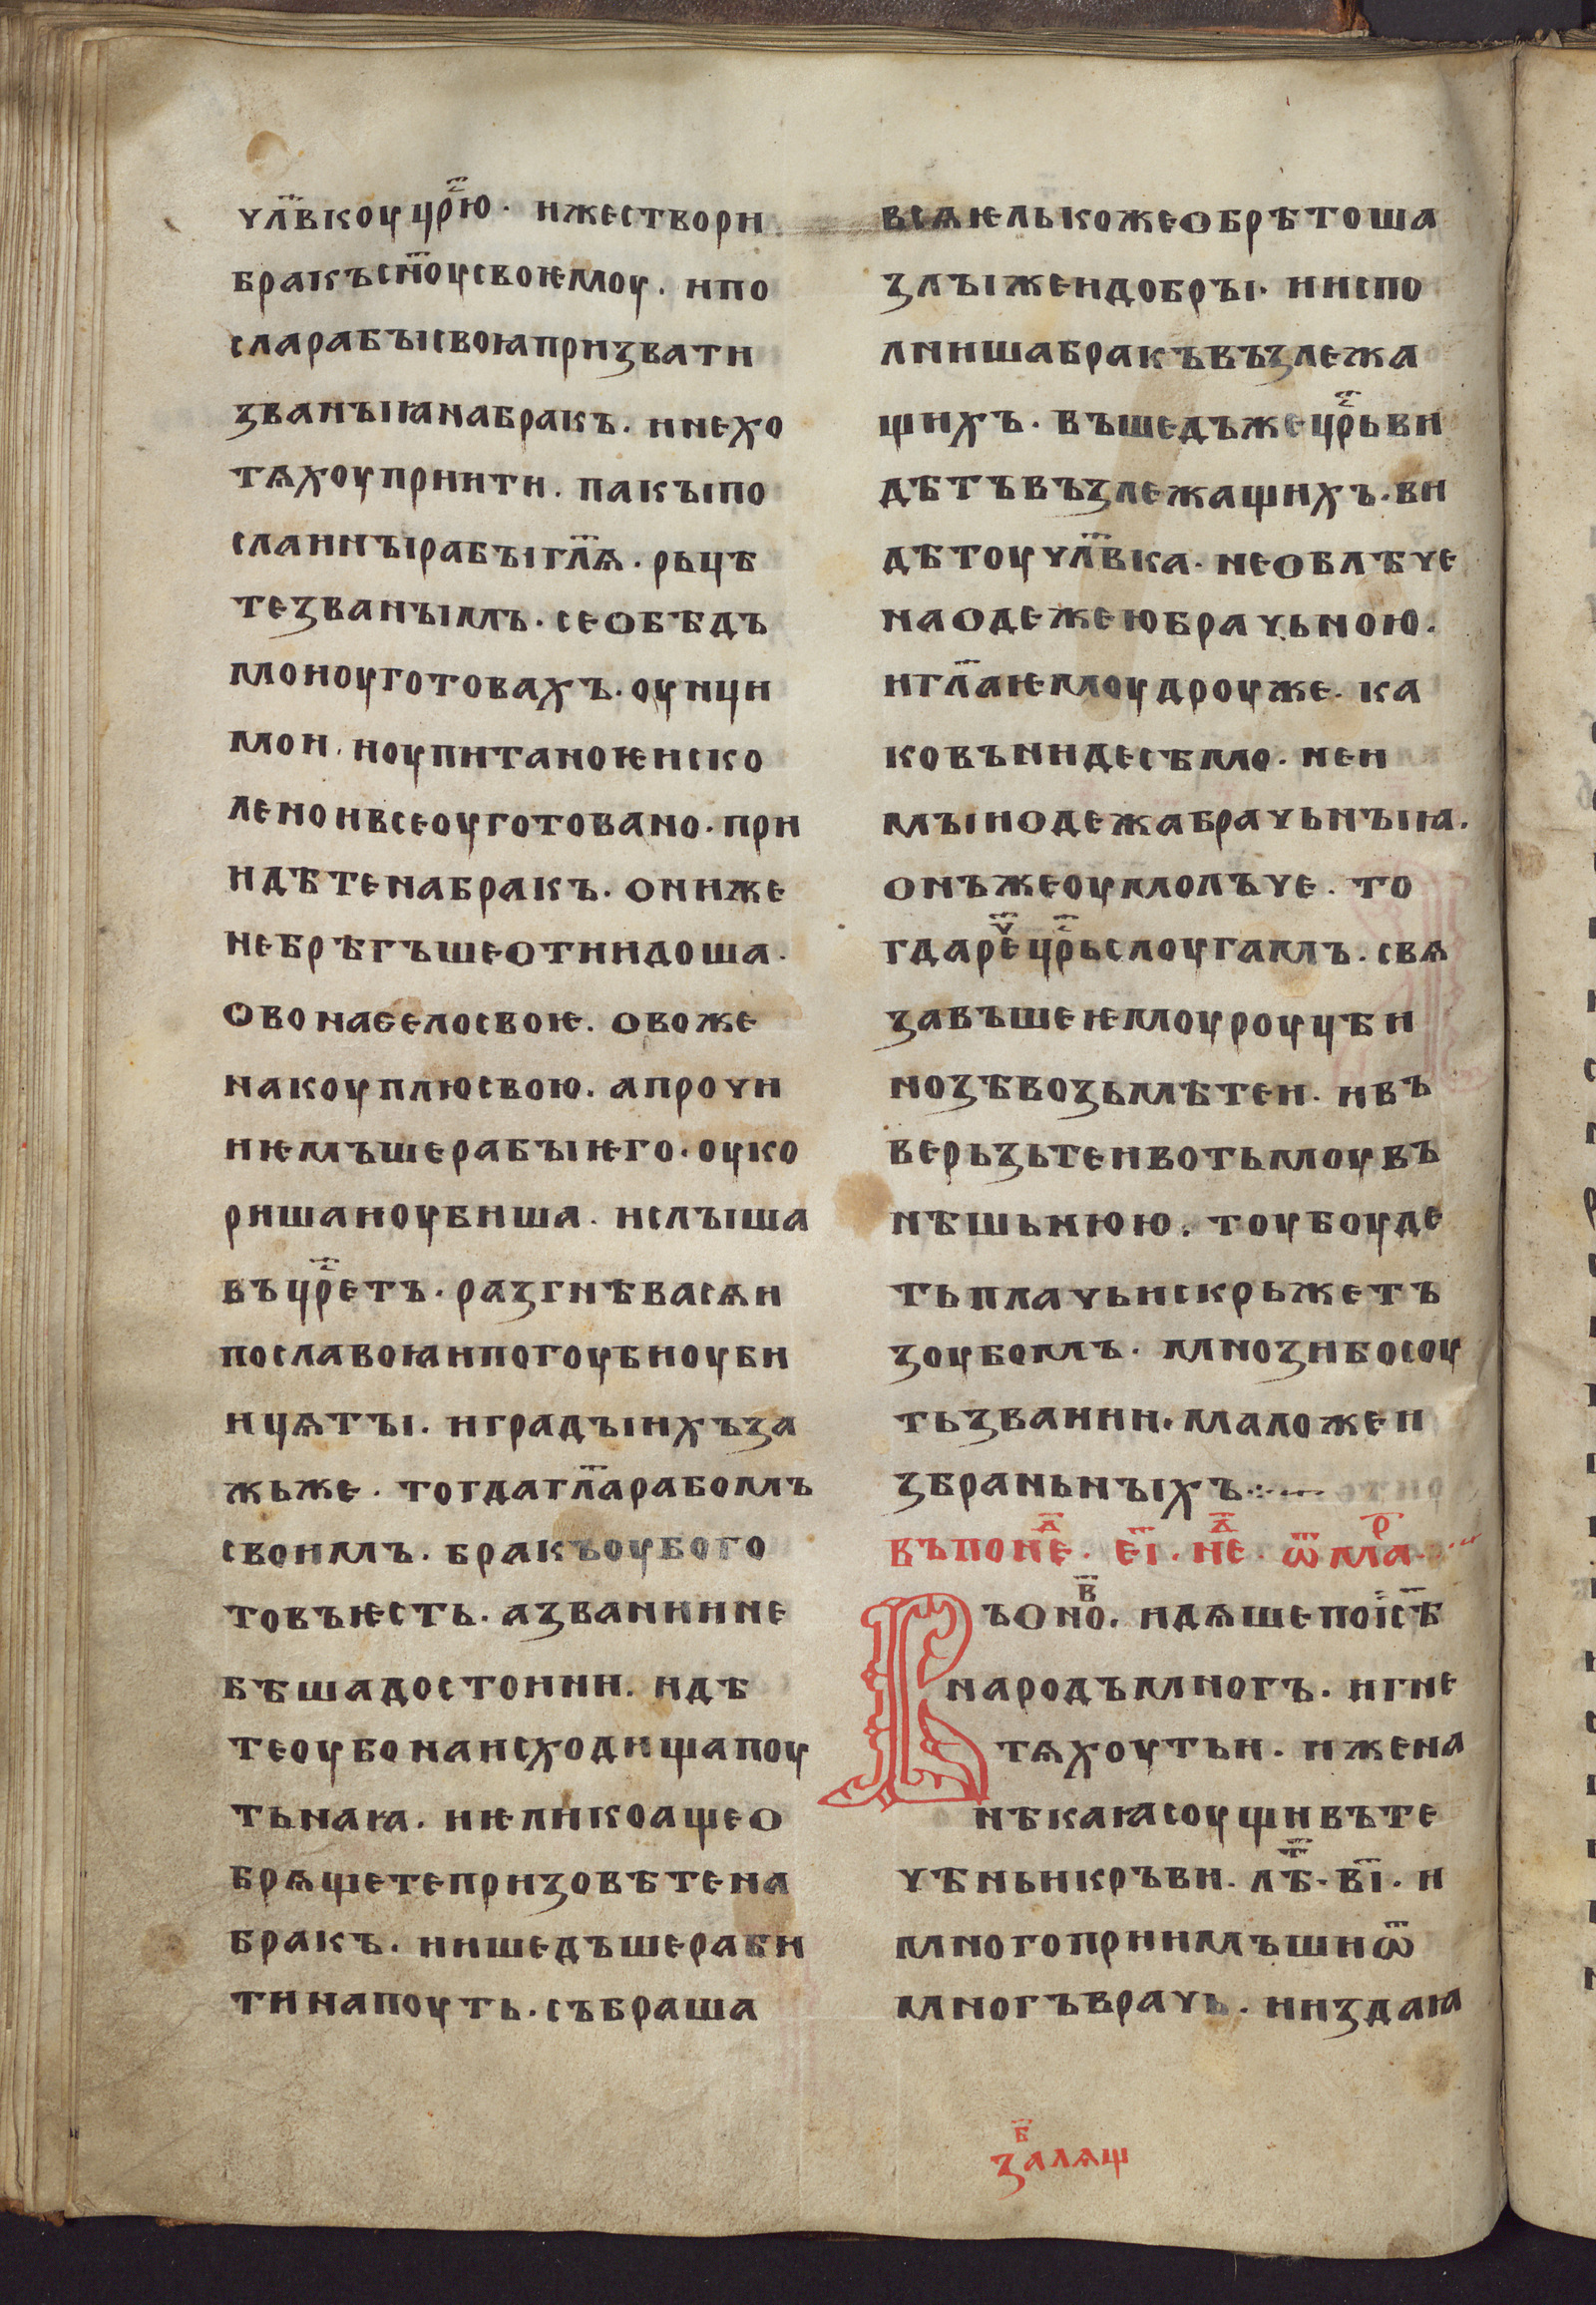 чл҃вкоу цр҃ю · иже створи
бракъ сн҃оу своѥмоу · и по
сла рабꙑ своꙗ призвати
званꙑꙗ на бракъ · и не хо
тѧхоу приити · пакꙑ по
сла инꙑ рабꙑ гл҃ѧ · рьцѣ
те званꙑмъ · се обѣдъ
мои оуготовахъ · оунци
мои · и оупитаноѥ иско
лено и все оуготовано · при
идѣте на бракъ · они же
небрѣгъше отиидоша ·
ово на село своѥ · овоже
на коуплю свою · а прочи
и ѥмъше рабꙑ ѥго · оуко
риша и оубиша · и слꙑша
въ цр҃ етъ · разгнѣва сѧ и
посла воꙗ и погоуби оуби
ицѧ тꙑ · и градꙑ ихъ за
жьже · тогда гл҃а рабомъ
своимъ · бракъ оубо го
товъ ѥсть · а званнии не
бѣша достоини · идѣ
те оубо на исходища поу
тьнаꙗ · и ѥлико аще о
брѧщете призовѣте на
бракъ · и ишедъше раби
ти на поуть · събраша
всѧ ѥлько же обрѣтоша
злꙑ же и добрꙑ · и испо
лниша бракъ възлежа
щихъ · въшедъ же цр҃ь ви
дѣтъ възлежащихъ · ви
дѣ тоу чл҃вка · не облѣче
на одежею брачьною ·
и гл҃а ѥмоу дроуже · ка
ко въниде сѣмо · не и
мꙑи одежа брачьнꙑꙗ ·
онъ же оумолъче · то
гда реч҃ цр҃ь слоугамъ · свѧ
завъше ѥмоу роуцѣ и
нозѣ возьмѣте и · и въ
верьзьте и во тьмоу въ
нѣшьнюю · тоу боуде
ть плачь и скрьжетъ
зоубомъ · мнози бо соу
ть званнии · мало же и
збраньнꙑхъ ·:·—
въ понеⷣ · е҃і · неⷣ · ѿ маⷬ ·
Въ оноⷡ · идѧше по іс҃ѣ
народъ многъ · и гне
тѧхоуть и · и жена
нѣкаꙗ соущи въ те
чѣньи кръви · лѣⷮ · в҃і · и
много приимъши ѿ
многъ врачь · и издаꙗ
заⷠ лѧщ